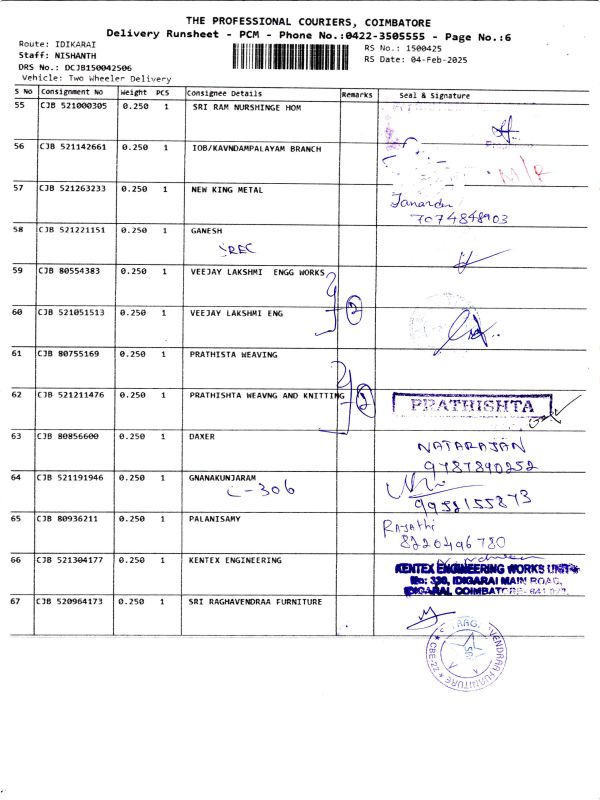 THE PROFESSIONAL COURIERS, COIMBATORE
Delivery Runsheet - PCM - Phone No.:0422-3505555 - Page No.:6
Route: IDIKARAI
RS No.: 1500425
Staff: NISHANTH
RS Date: 04-Feb-2025
DRS No.: DCJB150042506
Vehicle: Two Wheeler Delivery
S No Consignment No Weight PCS Consignee Details Remarks Seal & Signature
55 CJB 521000305 0.250 1 SRI RAM NURSHINGE HOM
56 CJB 521142661 0.250 1 IOB/KAVNDAMPALAYAM BRANCH
M/R
57 CJB 521263233 0.250 1 NEW KING METAL
Janardu
7074848903
58 CJB 521221151 0.250 1 GANESH
SREC
59 CJB 80554383 0.250 1 VEEJAY LAKSHMI ENGG WORKS
2
60 CJB 521051513 0.250 1 VEEJAY LAKSHMI ENG
61 CJB 80755169 0.250 1 PRATHISTA WEAVING
62 CJB 521211476 0.250 1 PRATHISHTA WEAVNG AND KNITTING
2
PRATHISHTA
63 CJB 80856600 0.250 1 DAXER
NATARAJAN
9787890252
64 CJB 521191946 0.250 1 GNANAKUNJARAM
C-306
9952155873
65 CJB 80936211 0.250 1 PALANISAMY
Rajathi
8220496780
66 CJB 521304177 0.250 1 KENTEX ENGINEERING
KENTEX ENGINEERING WORKS UNIT
No: 330, IDIGARAI MAIN ROAD,
IDIGARAI, COIMBATORE-
67 CJB 520964173 0.250 1 SRI RAGHAVENDRAA FURNITURE
CBE-22